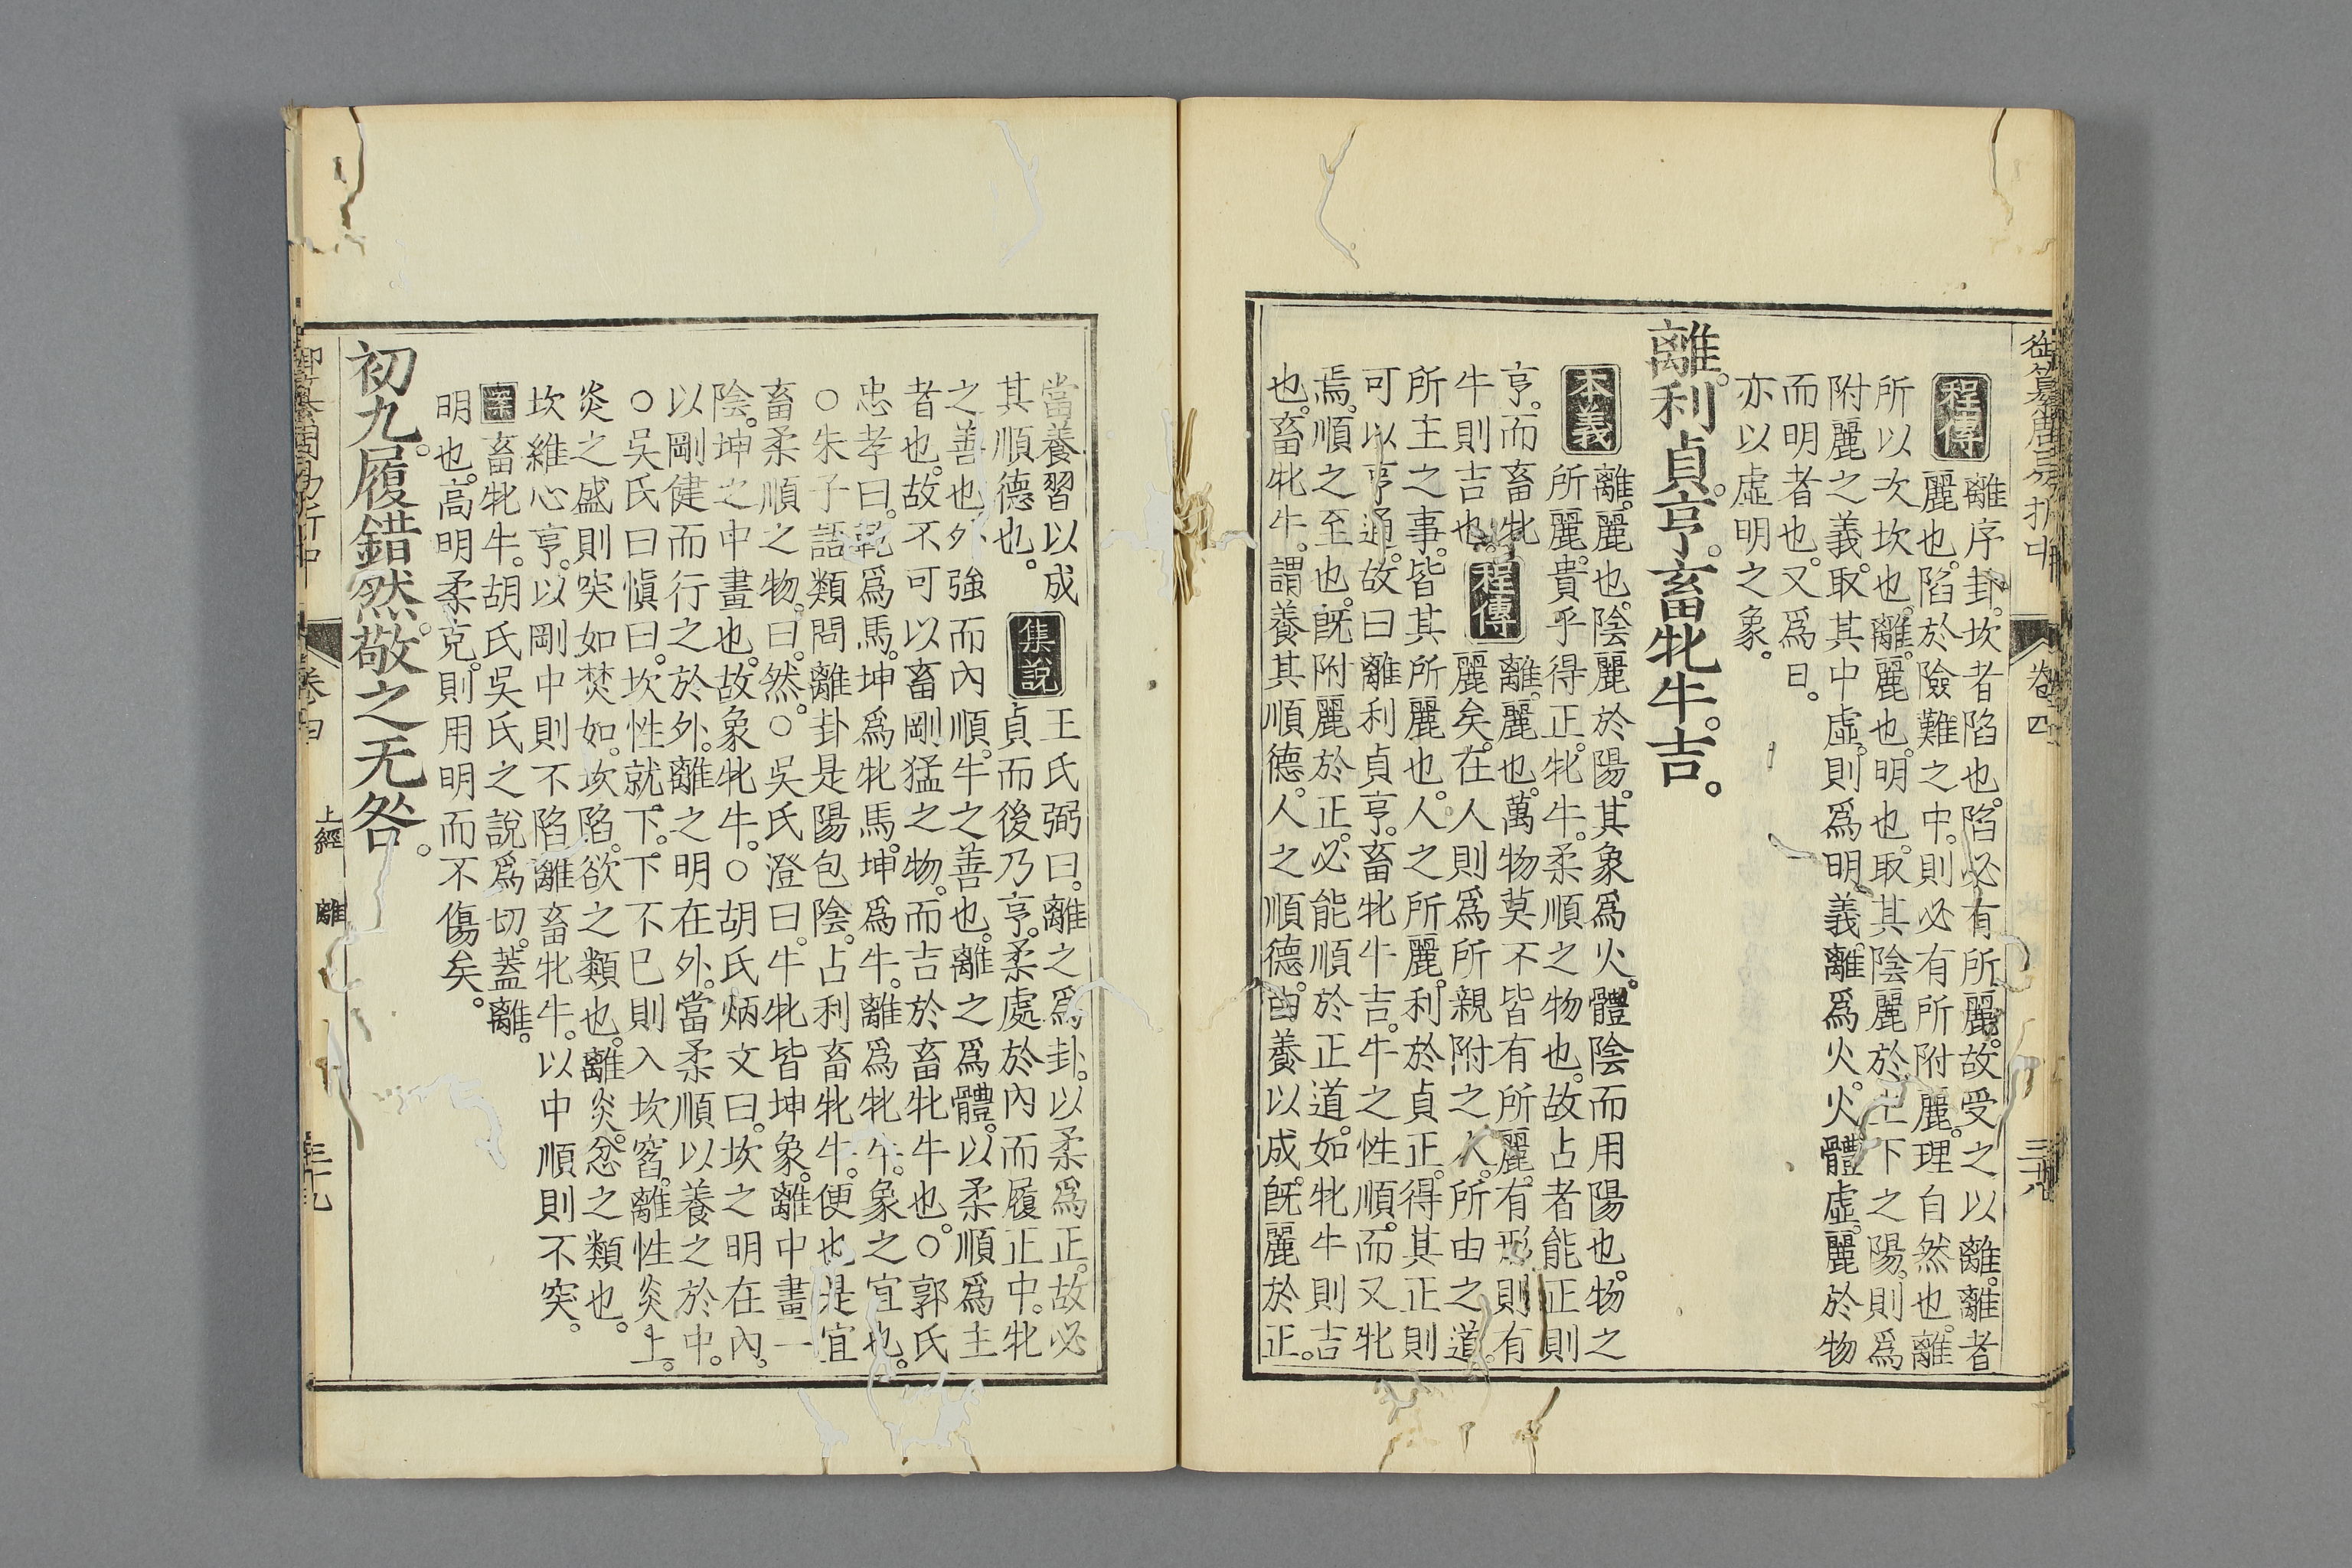 御纂周易折中 卷四 三十八
程傳
離序卦。坎者陷也。陷必有所麗。故受之以離。離者
麗也。陷於險難之中。則必有所附麗。理自然也。離
所以次坎也。離。麗也。明也。取其陰麗於上下之陽。則爲
附麗之義。取其中虛。則爲明義。離爲火。火體虛。麗於物
而明者也。又爲日。
亦以虛明之象。
離。利貞。亨。畜牝牛。吉。
本義
離。麗也。陰麗於陽。其象爲火。體陰而用陽也。物之
所麗。貴乎得正。牝牛。柔順之物也。故占者能正則
亨。而畜牝
牛則吉也
程傳
離。麗也。萬物莫不皆有所麗。有形則有
麗矣。在人則爲所親附之人。所由之道。
所主之事。皆其所麗也。人之所麗。利於貞正。得其正則
可以亨通。故曰離利貞亨。畜牝牛吉。牛之性順。而又牝
焉。順之至也。旣附麗於正。必能順於正道。如牝牛則吉
也。畜牝牛。謂養其順德。人之順德。由養以成。旣麗於正。
當養習以成
其順德也。
集說
王氏弼曰。離之爲卦。以柔爲正。故必
貞而後乃亨。柔處於內而履正中。牝
之善也。外強而內順。牛之善也。離之爲體。以柔順爲主
者也。故不可以畜剛猛之物。而吉於畜牝牛也。○郭氏
忠孝曰。乾爲馬。坤爲牝馬。坤爲牛。離爲牝牛。象之宜也。
○朱子語類問離卦是陽包陰。占利畜牝牛。便也是宜
畜柔順之物。曰。然。○吳氏澄曰。牛牝皆坤象。離中畫一
陰。坤之中畫也。故象牝牛。○胡氏炳文曰。坎之明在內。
以剛健而行之於外。離之明在外。當柔順以養之於中。
○吳氏曰愼曰。坎性就下。下不已則入坎窞。離性炎上。
炎之盛則突如焚如。坎陷。欲之類也。離炎。忿之類也。
坎維心亨。以剛中則不陷。離畜牝牛。以中順則不突。
案畜牝牛。胡氏吳氏之說爲切。蓋離。
明也。高明柔克。則用明而不傷矣。
初九。履錯然。敬之无咎。
御纂周易折中 卷四 上經 離 三十九